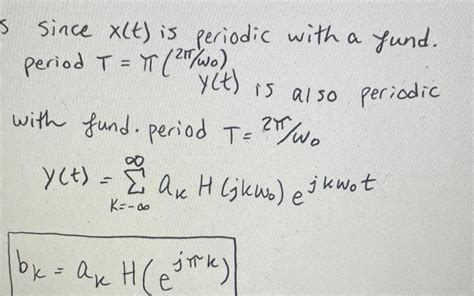 s Since x(t) is periodic with a fund.
period T = π(2π/ω₀)
y(t) is also periodic
with fund. period T = 2π/ω₀
y(t) = ∑_{K=-∞}^{∞} a_k H(jkω₀) e^{jkω₀t}
b_k = a_k H(e^{jπk})